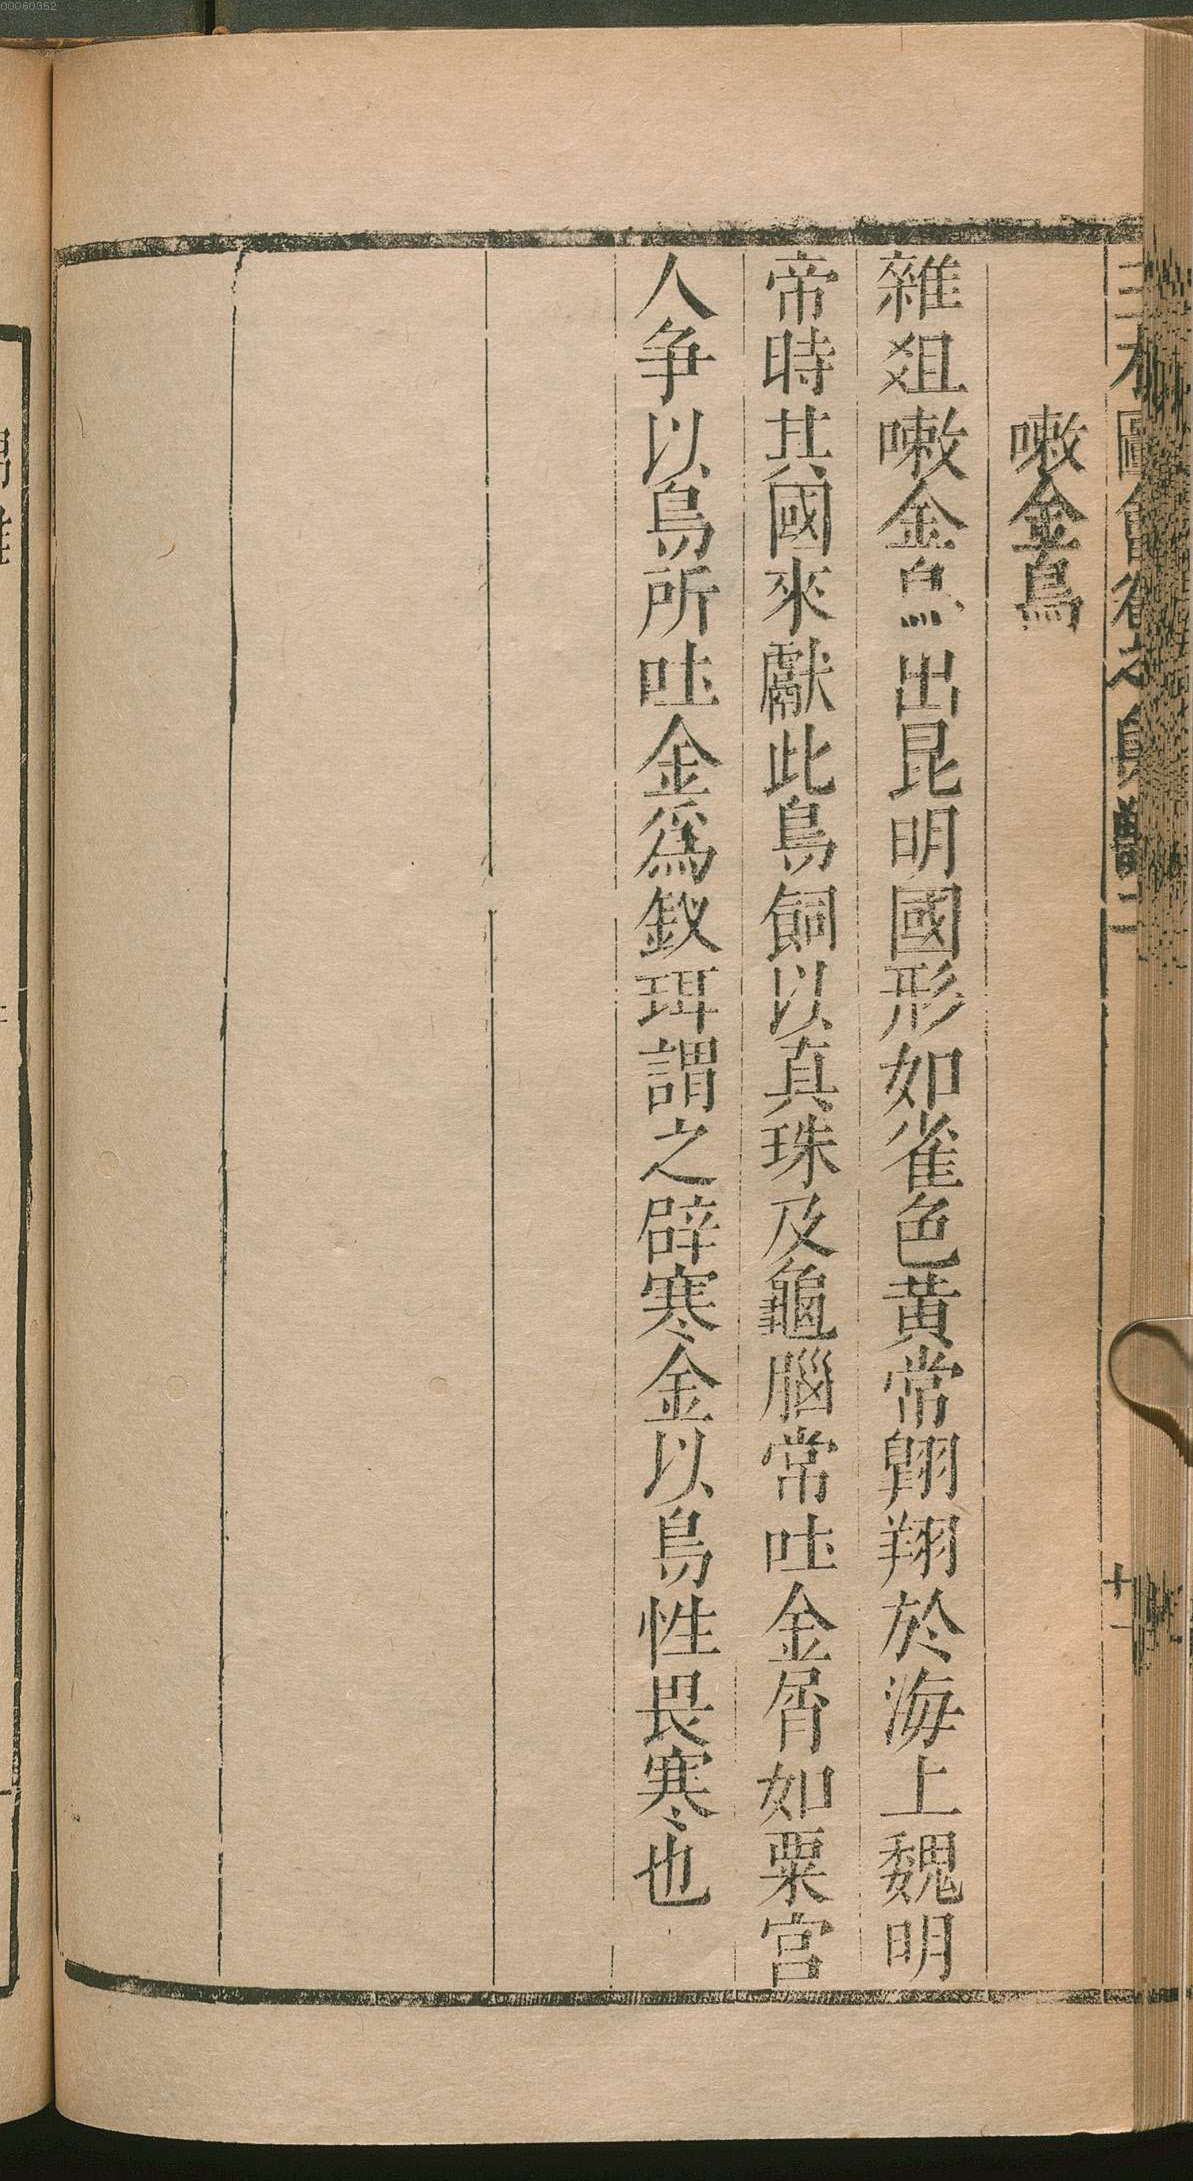 00060352
三才圖會卷之鳥獸二
十一
嗽金鳥
雜爼嗽金鳥出昆明國形如雀色黄常翺翔於海上魏明
帝時其國來獻此鳥飼以真珠及龜腦常吐金屑如粟宫
人争以鳥所吐金爲釵珥謂之辟寒金以鳥性畏寒也